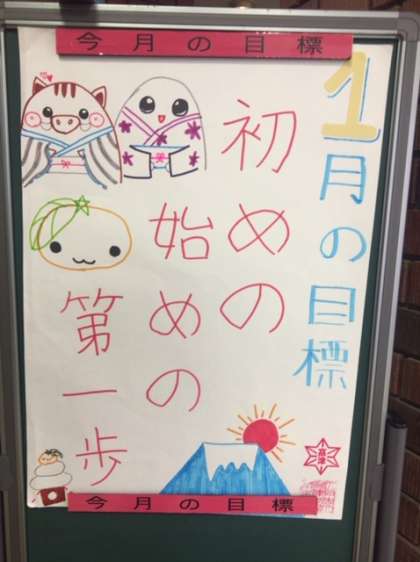 今月の目標
1月の目標
初めの
始めの
第一歩
今月の目標